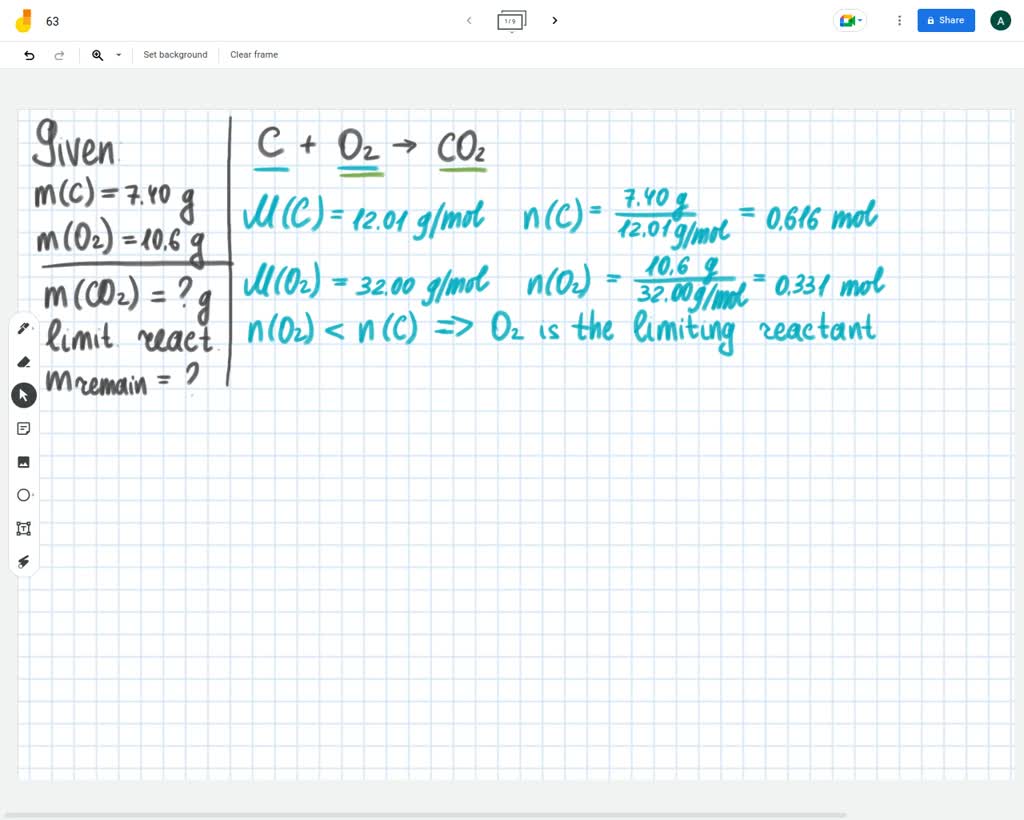 63
1/9
Share
A
Set background
Clear frame
Given
m(C) = 7.40 g
m(O₂) = 10.6 g
m(CO₂) = ? g
limit react.
m remain = ?
C + O₂ → CO₂
M(C) = 12.01 g/mol n(C) = 7.40 g / 12.01 g/mol = 0.616 mol
M(O₂) = 32.00 g/mol n(O₂) = 10.6 g / 32.00 g/mol = 0.331 mol
n(O₂) < n(C) => O₂ is the limiting reactant